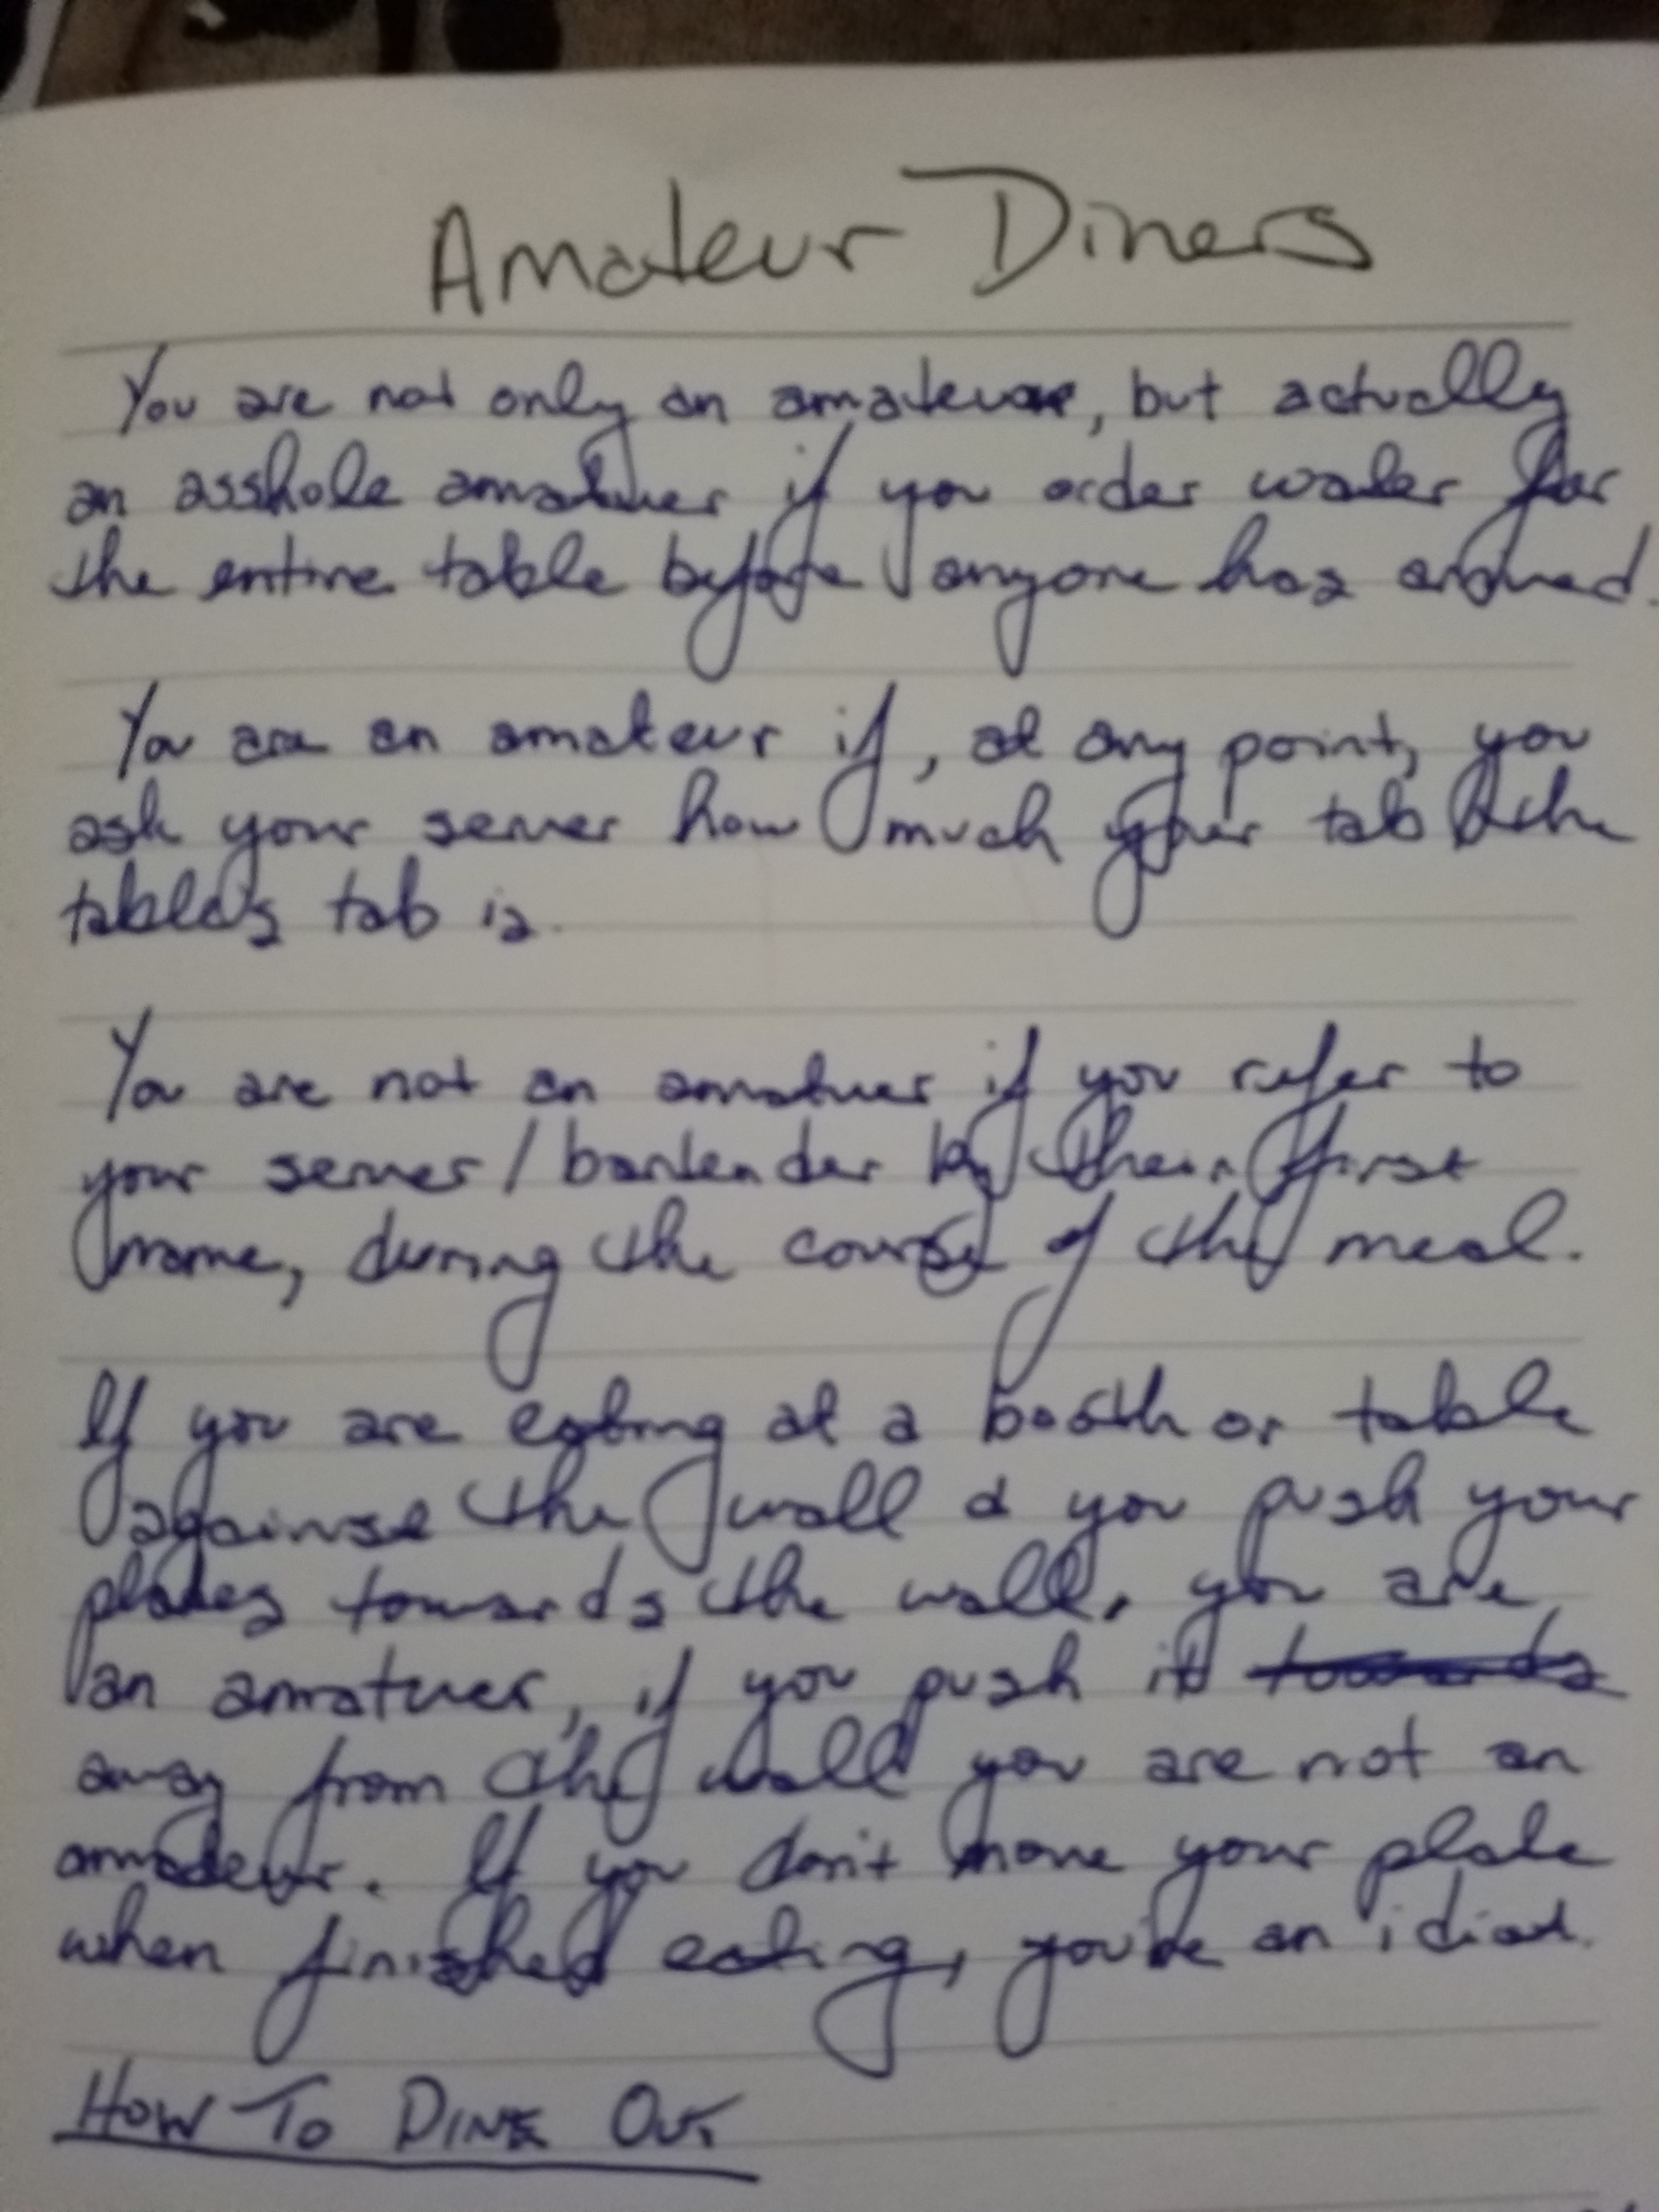 Amateur Diners
You are not only an amateur, but actually
an asshole amatuer if you order water for
the entire table before anyone has arrived.
You are an amateur if, at any point, you
ask your server how much your tab & the
table's tab is.
You are not an amatuer if you refer to
your server / bartender by their first
name, during the course of the meal.
If you are eating at a booth or table
against the wall & you push your
plates towards the wall, you are
an amatuer, if you push it towards
away from the wall you are not an
amateur. If you don't move your plate
when finished eating, you're an idiot.
HOW TO DINE OUT